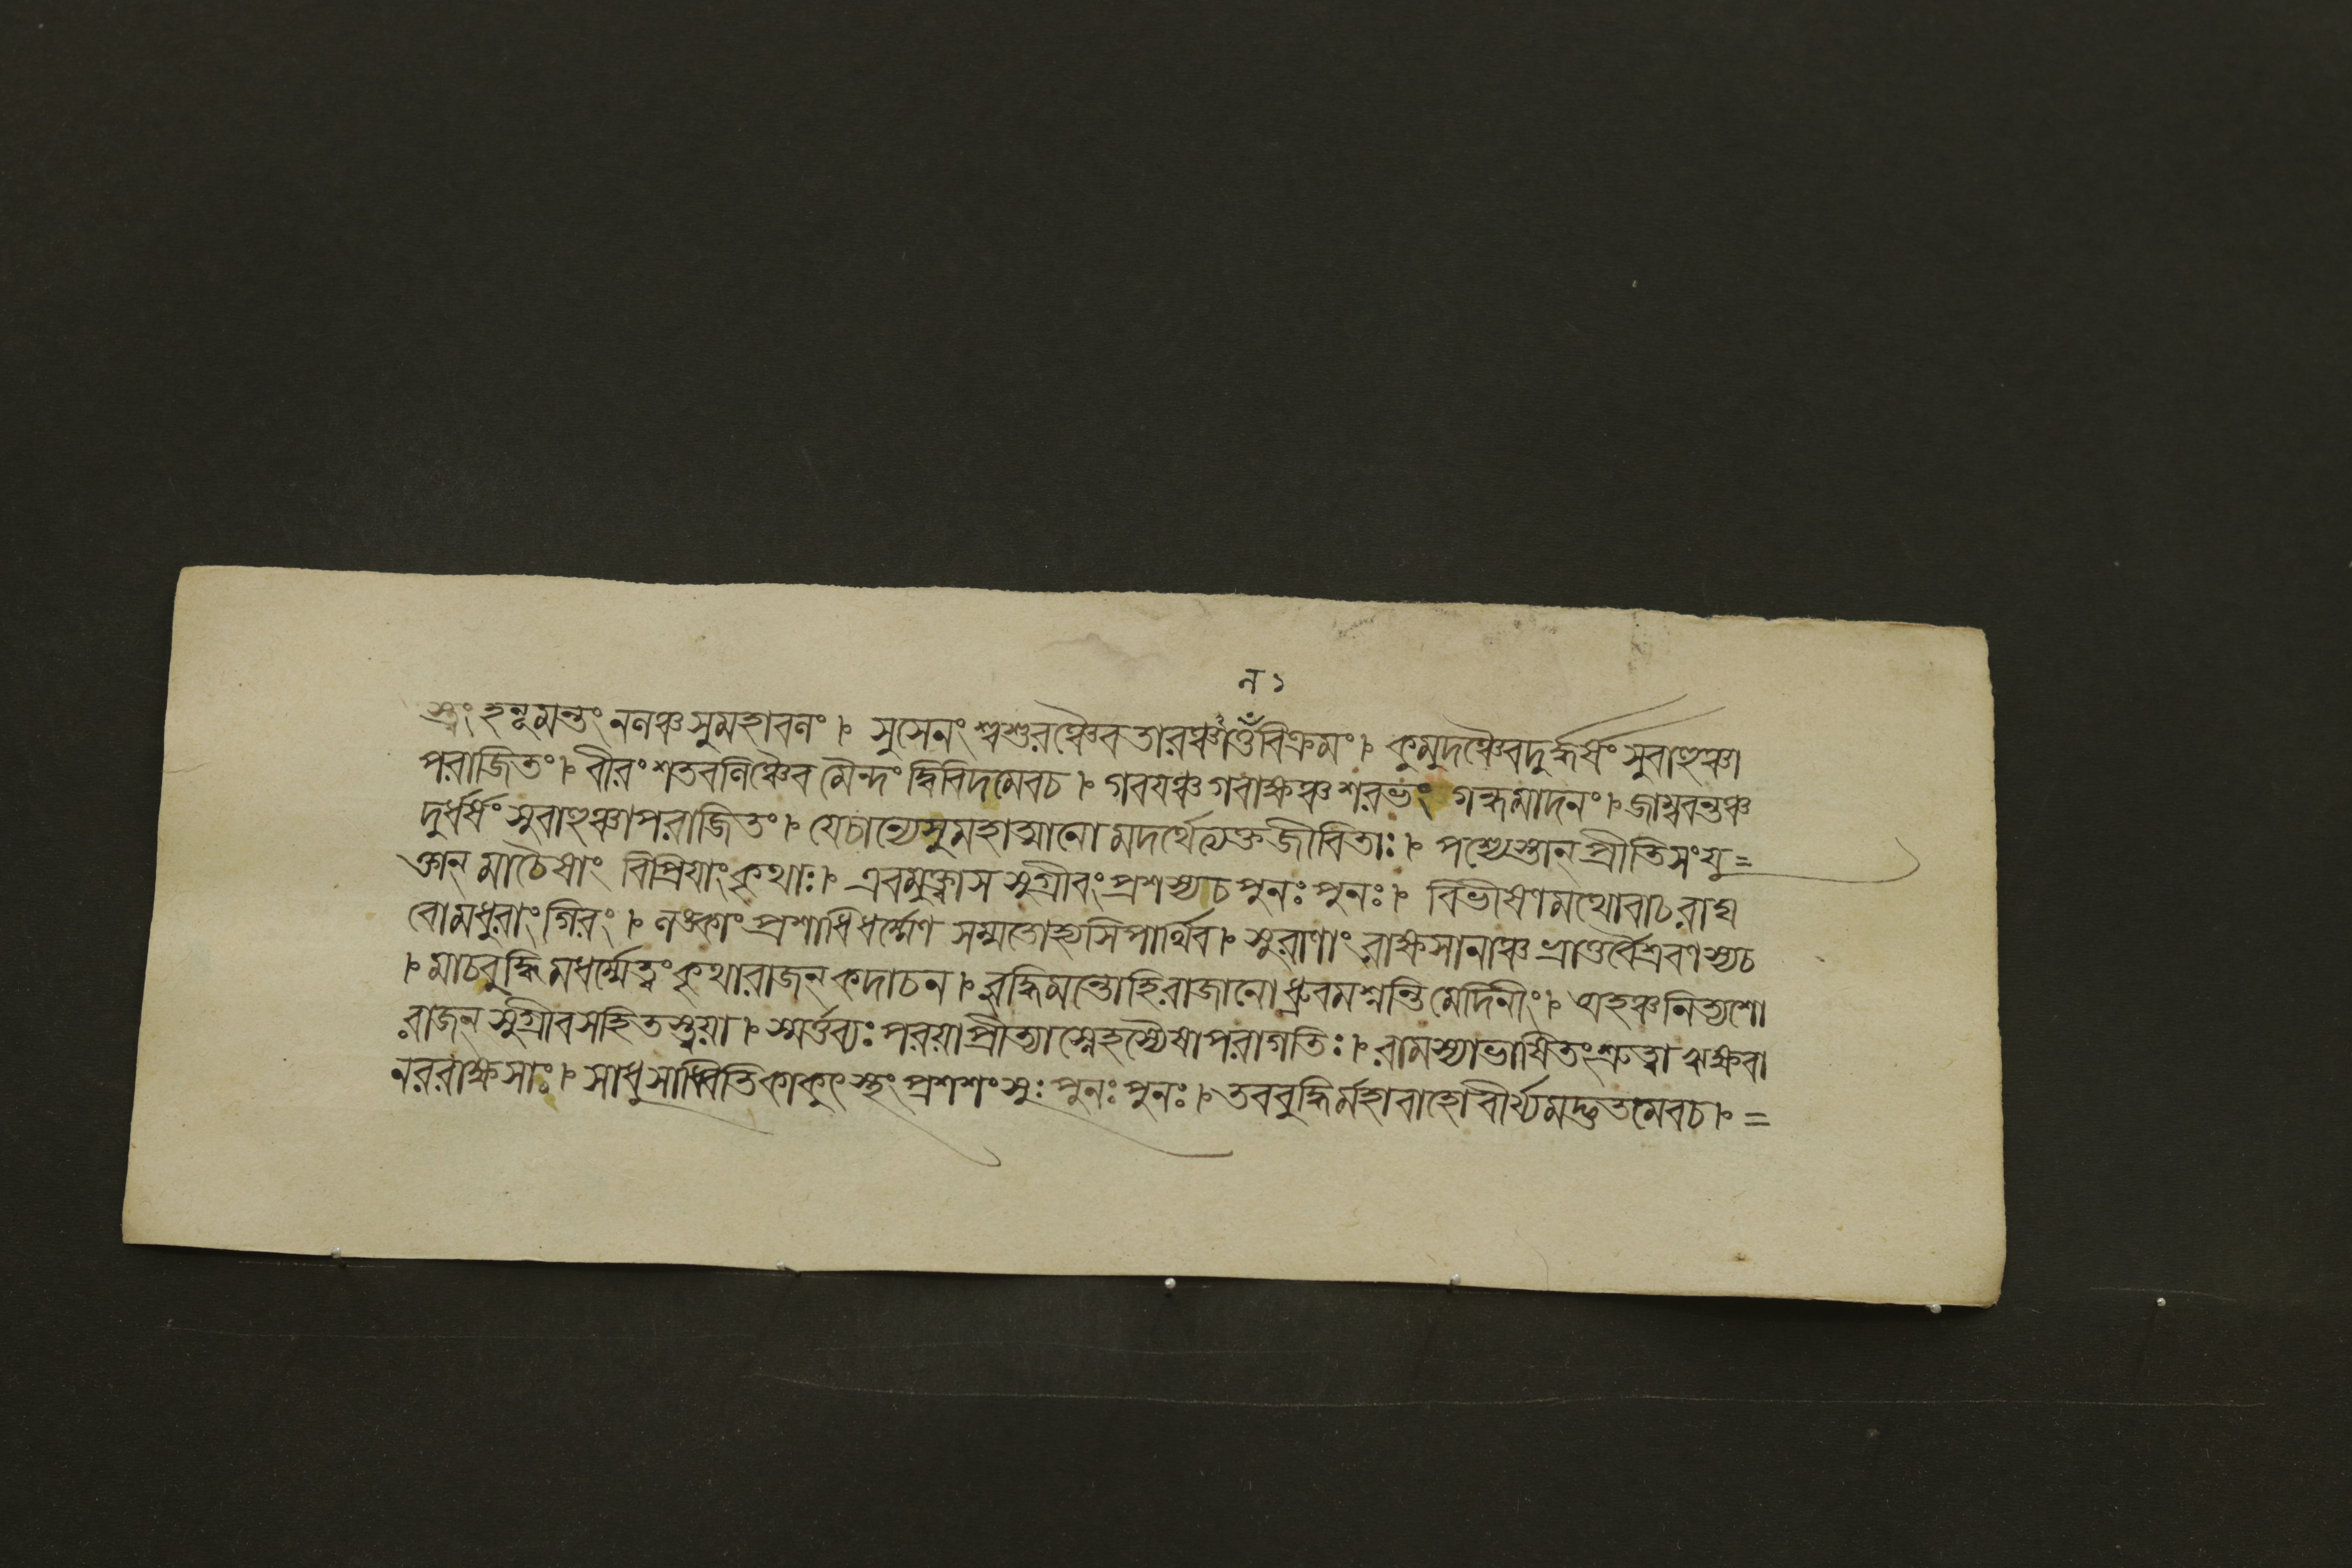 ন ১
স্ত্বং হনূমন্তং ননঞ্চ সুমহাবনং । সুসেনং শ্বশুরঞ্চৈব তারঞ্চাণ্ডবিক্রমং । কুমুদঞ্চৈবদুর্দ্ধর্ষং সুবাহুঞ্চা
পরাজিতং । বীরং শতবনিঞ্চৈব মৈন্দং দ্বিবিদমেবচ । গবযঞ্চ গবাক্ষঞ্চ শরভং গন্ধমাদনং । জাম্ববন্তঞ্চ
দুর্ধর্ষং সুবাহুঞ্চাপরাজিতং । যেচান্যেসুমহাত্মানো মদর্থেত্যক্তজীবিতাঃ । পশ্যেস্তান্ প্রীতিসংযু =
ক্তান্ মাচৈষাং বিপ্রিযাংকৃথাঃ । এবমুক্ত্বাস সুগ্রীবং প্রশস্যচ পুনঃ পুনঃ । বিভীষণমথোবাচ রাঘ
বোমধুরাংগিরং । নঙ্কাং প্রশাধিধর্ম্মেণ সম্মতোহ্যসিপার্থিব । সুরাণাং রাক্ষসানাঞ্চ ভ্রাতুর্বৈশ্রবণস্যচ
। মাচবুদ্ধিমধর্ম্মেত্বং কৃথারাজন্ কদাচন । বুদ্ধিমন্তোহিরাজানো ধ্রুবমশ্নন্তি মেদিনীং । অহঞ্চনিত্যশো
রাজন্ সুগ্রীবসহিতস্ত্বয়া । স্মর্ত্তব্যঃ পরয়াপ্রীত্যাস্নেহস্যৈষাপরাগতিঃ । রামস্যাভাষিতং শ্রুত্বা ঋক্ষবা
নররাক্ষসাঃ । সাধুসাধ্বিতিকাকুৎস্থং প্রশশংসুঃ পুনঃ পুনঃ । তববুদ্ধির্মহাবাহো বীর্য্যমদ্ভুতমেবচ । =